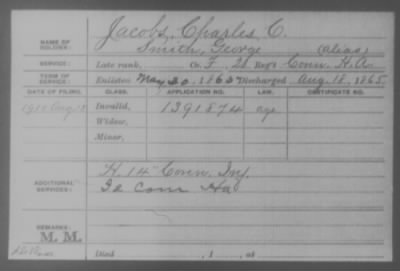 NAME OF SOLDIER: Jacobs, Charles C.
Smith, George (alias)
SERVICE: Late rank, Co. F, 2d Reg't Conn. H.A.
TERM OF SERVICE: Enlisted May 20, 186 Discharged Aug. 18, 1865.
DATE OF FILING. CLASS. APPLICATION NO. LAW. CERTIFICATE NO.
1910 Aug Invalid, 1391874 age
Widow,
Minor,
ADDITIONAL SERVICES: H. 14" Conn. Inf.
2d Conn Ha
REMARKS:
M. M.
Died , 1 , at